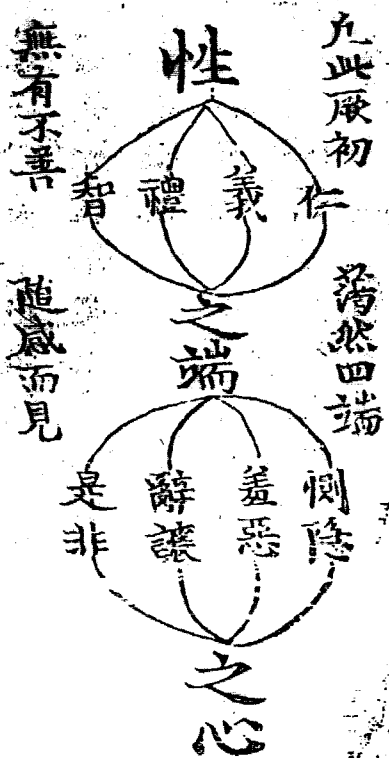 凡此厥初
無有不善
性
仁
義
禮
智
藹然四端
随感而見
之端
惻隱
羞惡
辭讓
是非
之心